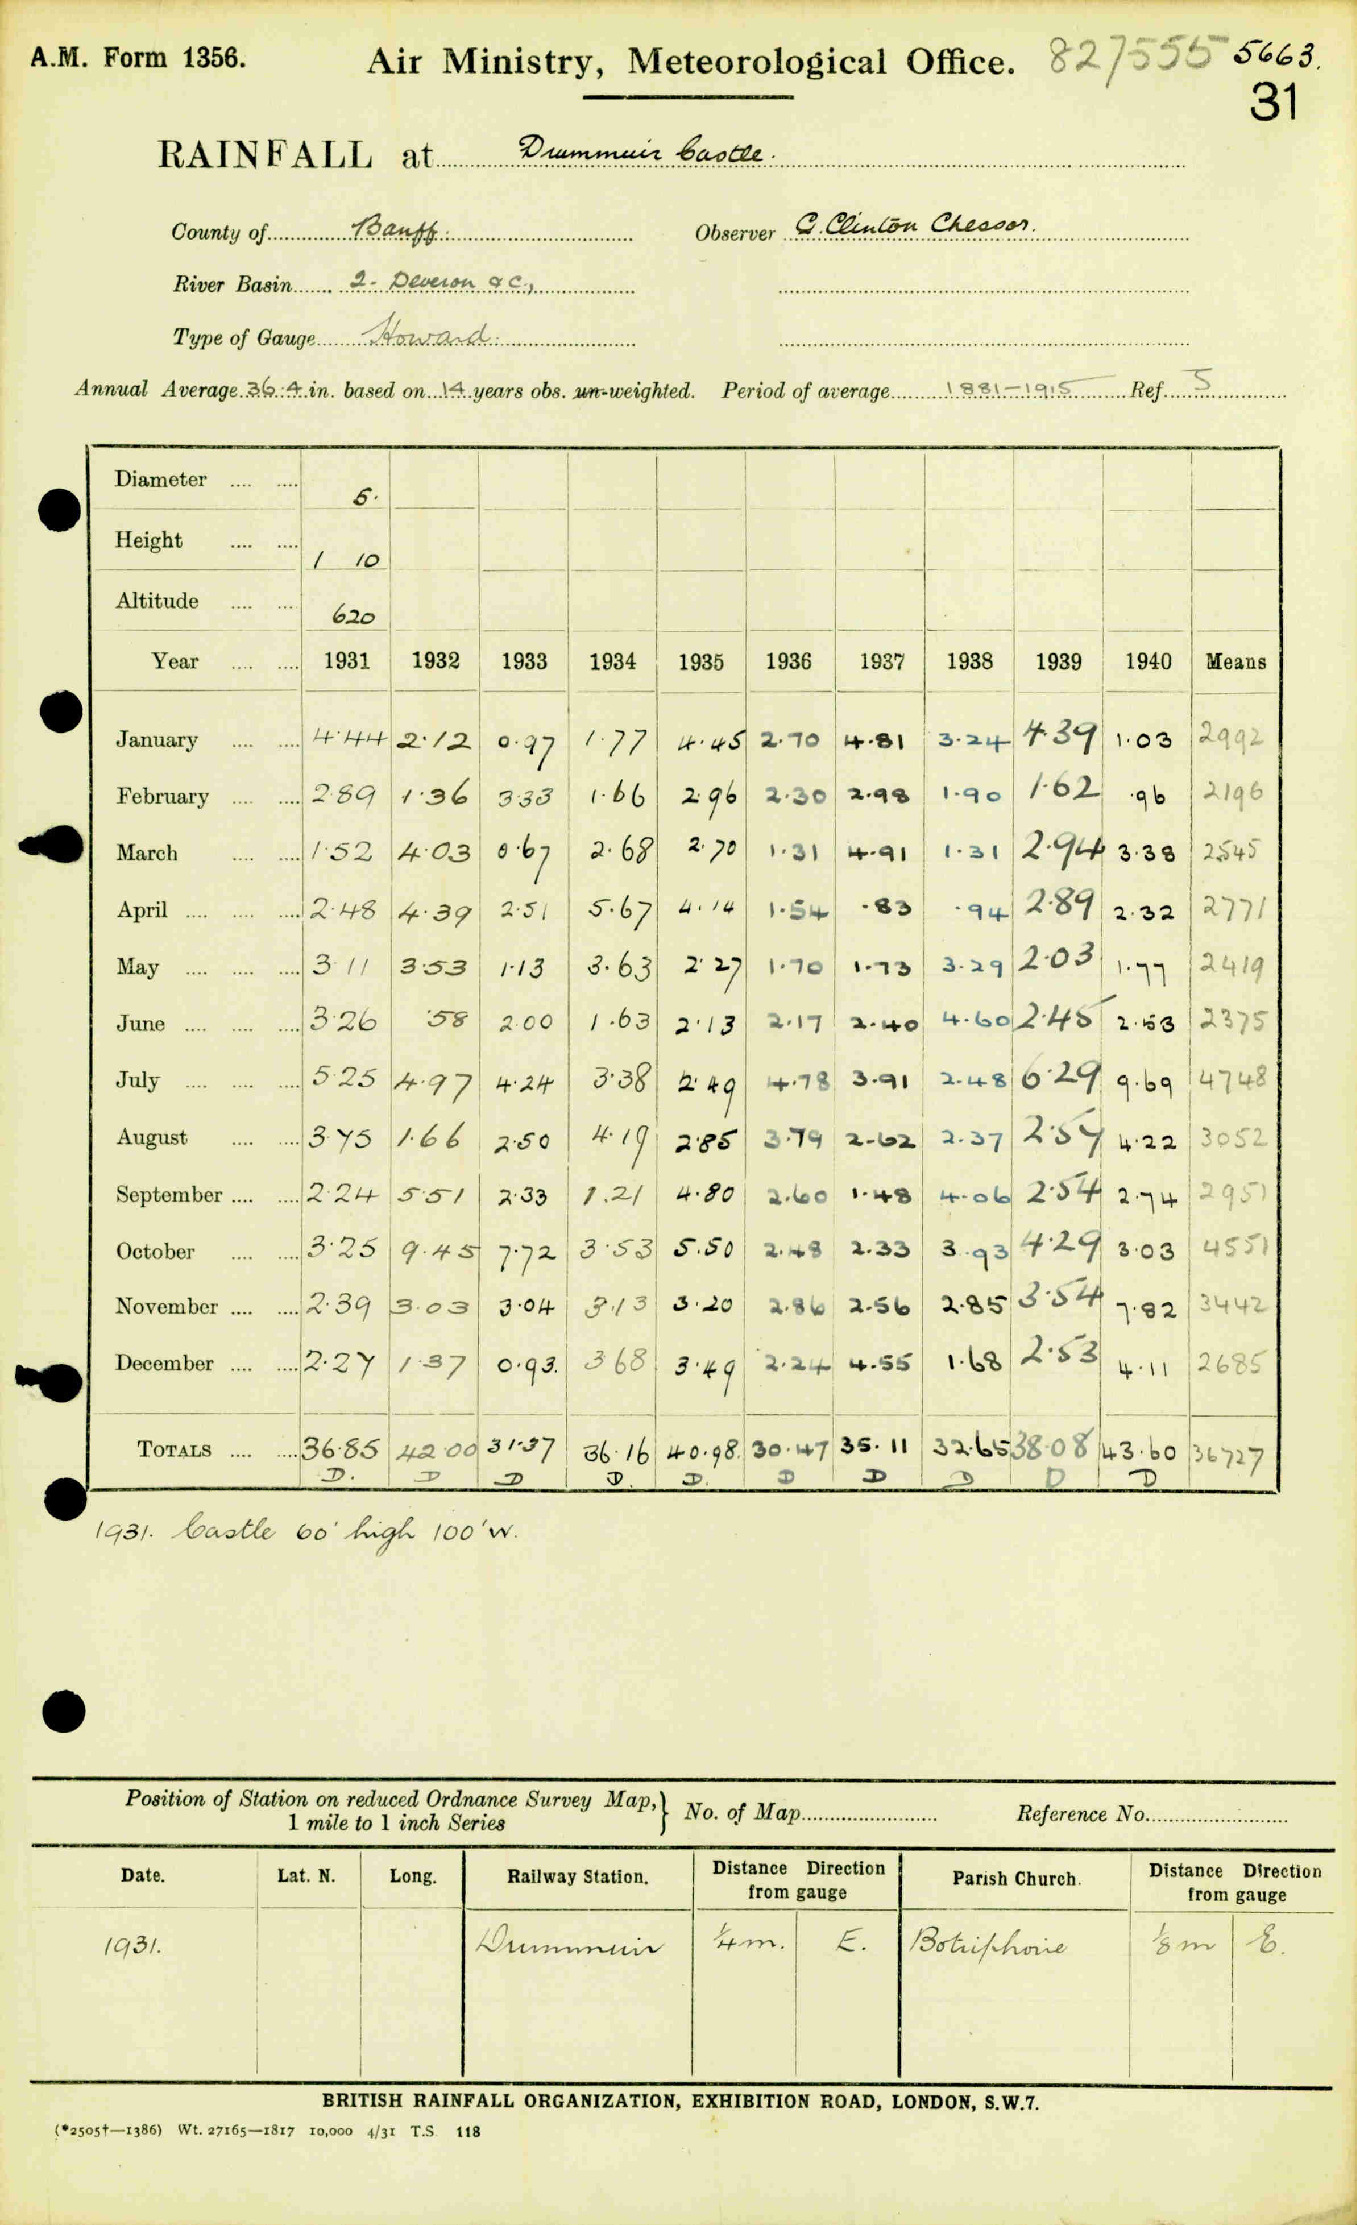 A.M. Form 1356. Air Ministry, Meteorological Office. 827555 5663.
31
RAINFALL at Drummuir Castle.
County of Banff. Observer G. Clinton Chessor.
River Basin 2. Deveron &c.,
Type of Gauge Howard.
Annual Average 36.4 in. based on 14 years obs. un-weighted. Period of average 1881-1915 Ref. 5
Diameter 5.
Height 1 10
Altitude 620
Year 1931 1932 1933 1934 1935 1936 1937 1938 1939 1940 Means
January 4.44 2.12 0.97 1.77 4.45 2.70 4.81 3.24 4.39 1.03 2992
February 2.89 1.36 3.33 1.66 2.96 2.30 2.98 1.90 1.62 .96 2196
March 1.52 4.03 0.67 2.68 2.70 1.31 4.91 1.31 2.94 3.38 2545
April 2.48 4.39 2.51 5.67 4.14 1.54 .83 .94 2.89 2.32 2771
May 3.11 3.53 1.13 3.63 2.27 1.70 1.73 3.29 2.03 1.77 2419
June 3.26 .58 2.00 1.63 2.13 2.17 2.40 4.60 2.45 2.53 2375
July 5.25 4.97 4.24 3.38 2.49 4.78 3.91 2.48 6.29 9.69 4748
August 3.75 1.66 2.50 4.19 2.85 3.79 2.62 2.37 2.57 4.22 3052
September 2.24 5.51 2.33 1.21 4.80 2.60 1.48 4.06 2.54 2.74 2951
October 3.25 9.45 7.72 3.53 5.50 2.48 2.33 3.93 4.29 3.03 4551
November 2.39 3.03 3.04 3.13 3.20 2.86 2.56 2.85 3.54 7.82 3442
December 2.27 1.37 0.93. 3.68 3.49 2.24 4.55 1.68 2.53 4.11 2685
TOTALS 36.85 42.00 31.37 36.16 40.98. 30.47 35.11 32.65 38.08 43.60 36727
D. D D D. D. D D D D D
1931. Castle 60' high 100' W.
Position of Station on reduced Ordnance Survey Map, } No. of Map Reference No.
1 mile to 1 inch Series
Date. Lat. N. Long. Railway Station. Distance Direction from gauge Parish Church. Distance Direction from gauge
1931. Drummuir ¼ m. E. Botriphnie ⅛ m E.
BRITISH RAINFALL ORGANIZATION, EXHIBITION ROAD, LONDON, S.W.7.
(*2505†—1386) Wt. 27165—1817 10,000 4/31 T.S. 118